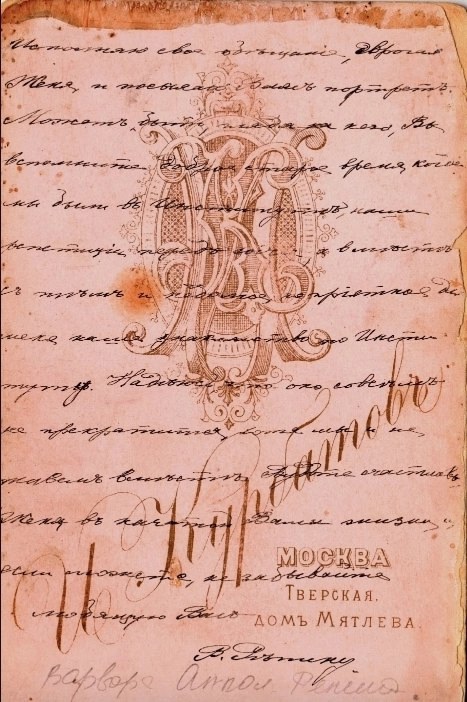 Исполняю свое обѣщаніе, дорогая
Женя, и посылаю Вамъ портретъ.
Можетъ быть, глядя на него, Вы
вспомните доброе старое время, когда
мы были въ Институтѣ, наши
передъ а вмѣстѣ
съ тѣмъ и пріятное для
меня наше знакомство по Инсти-
туту. Надѣюсь, что оно совсѣмъ
не прекратится, хотя мы и не
вмѣстѣ. Будьте счастливы,
Женя, въ начатой Вами жизни, и,
если можете, не забывайте
любящую Васъ
В. Рѣпину
И. Курбатовъ
МОСКВА
ТВЕРСКАЯ.
ДОМЪ МЯТЛЕВА.
Варвара Аппол. Репина